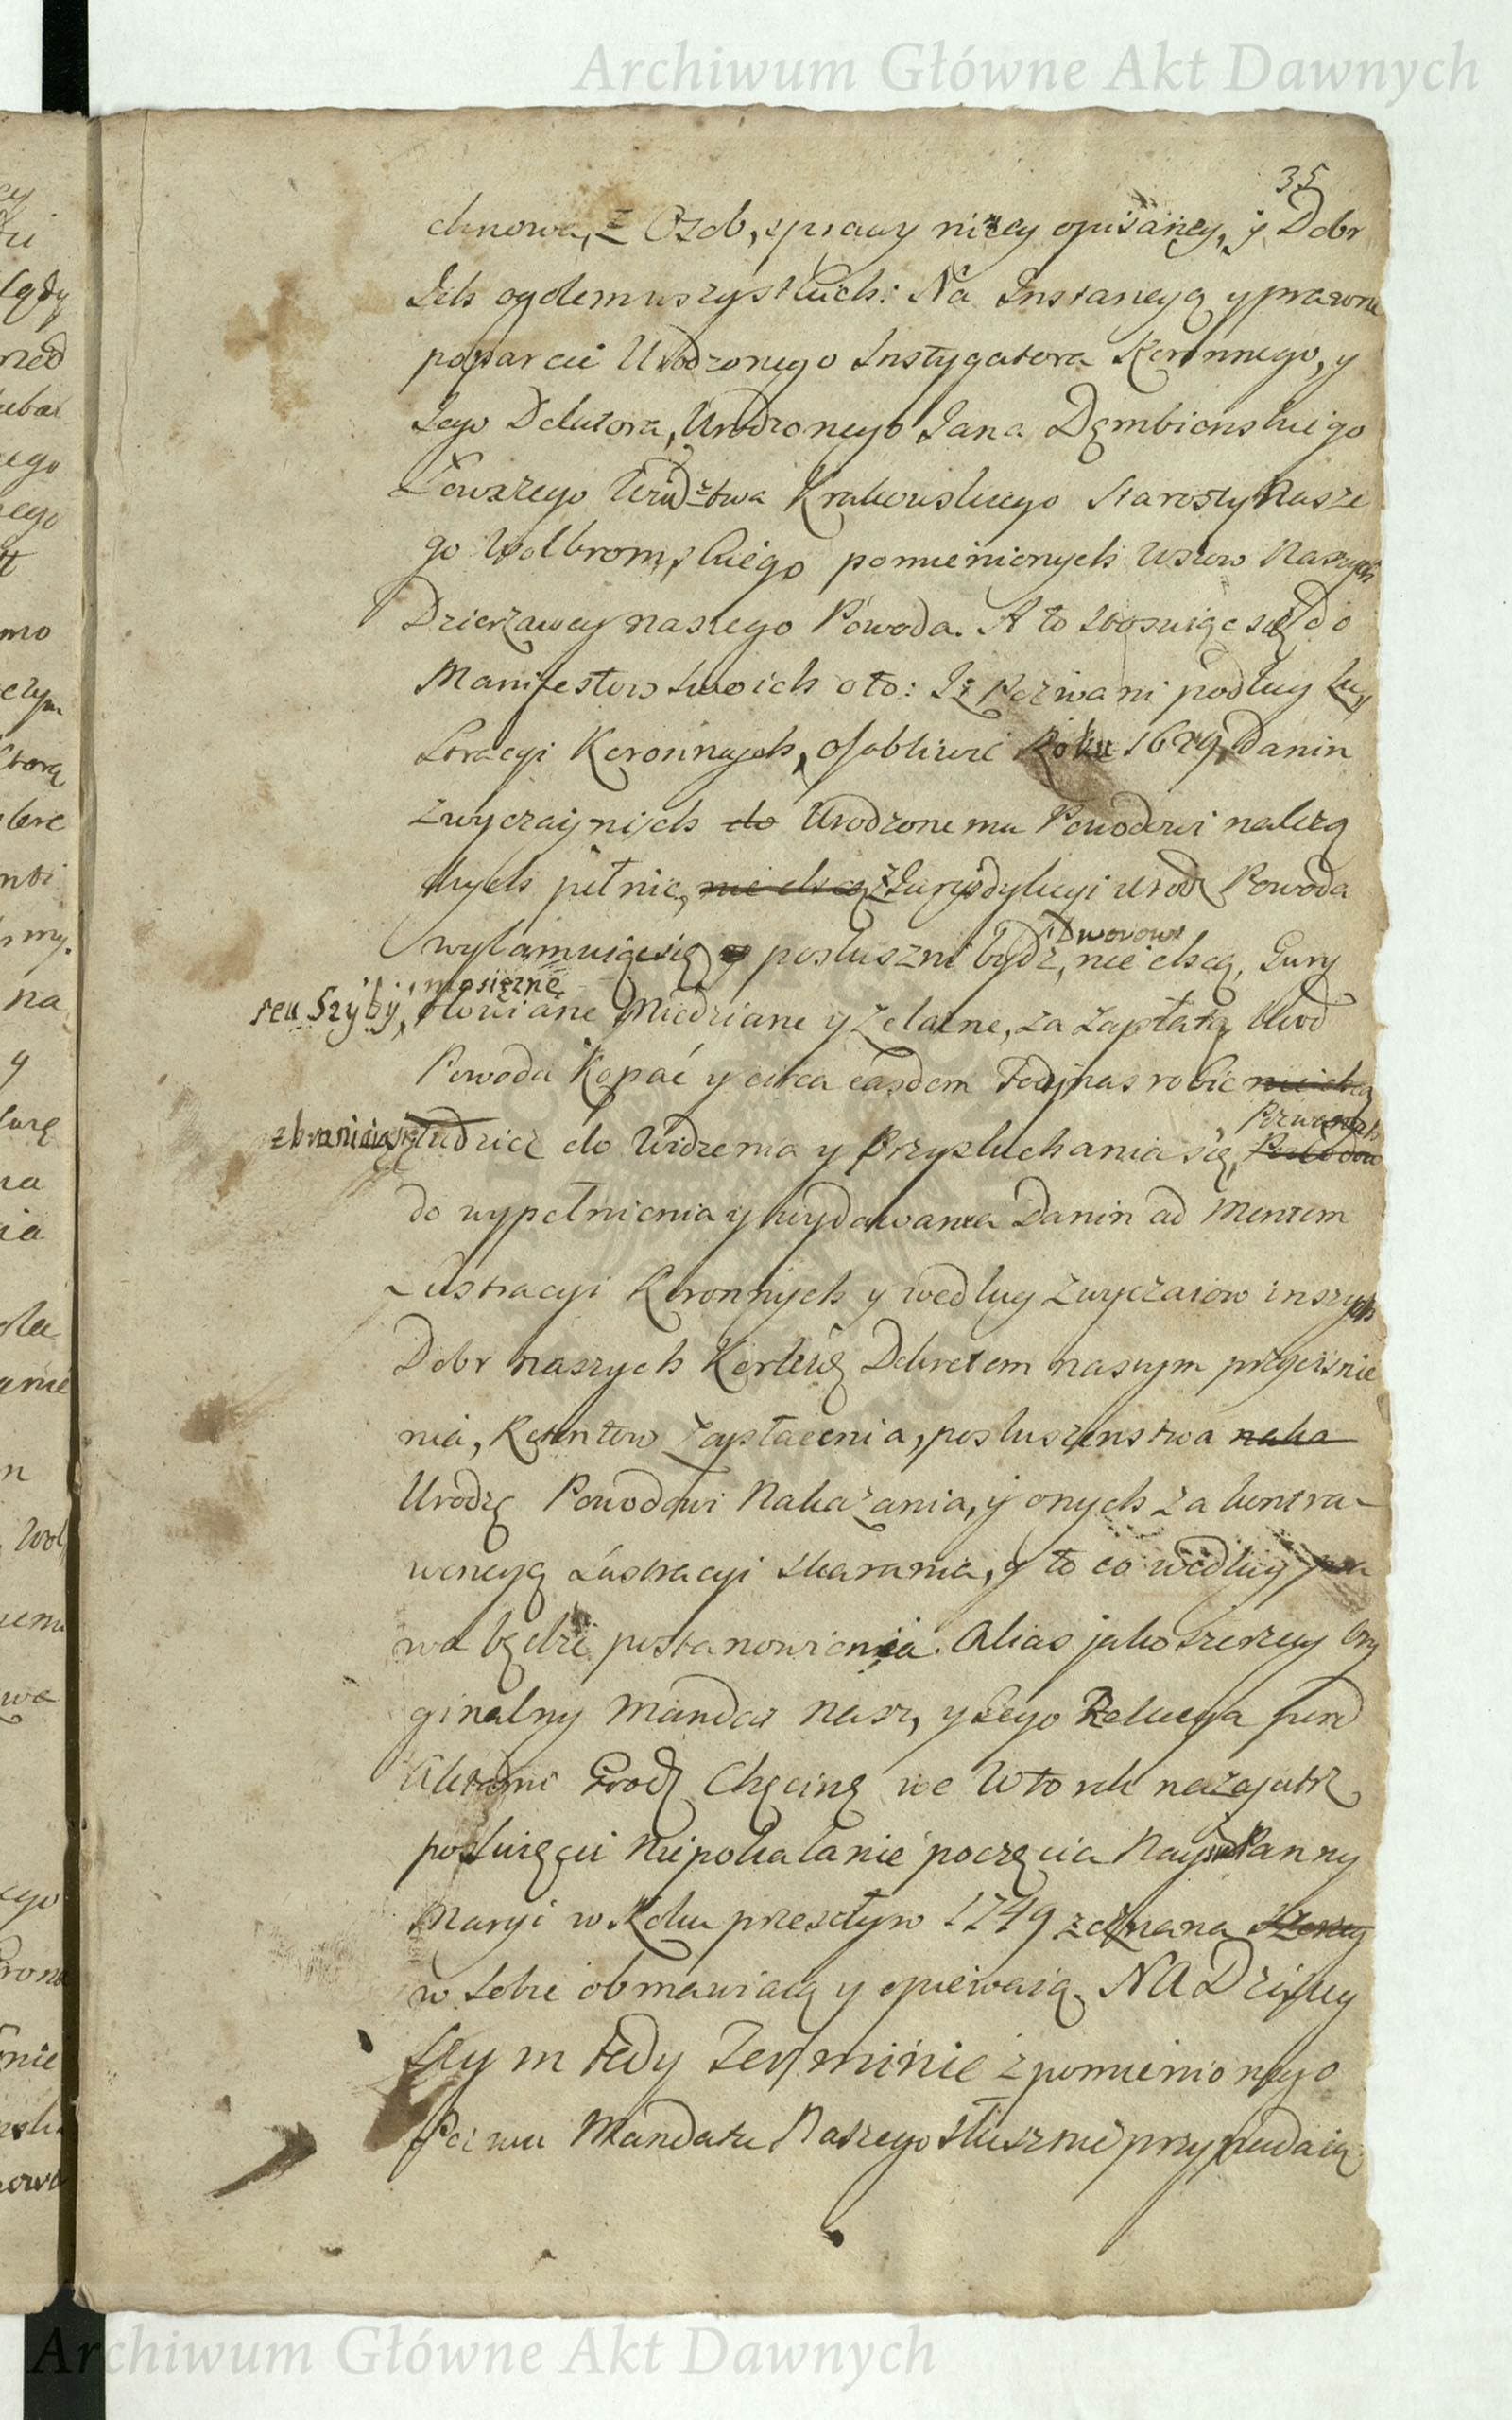 Archiwum Główne Akt Dawnych
35
chnowa, z Osob, sprawy niżey opisaney, y Dobr
Ich ogolem wszystkich: Na Instancyą y prawne
poparcie Urodzonego Instygatora Koronnego, y
Jego Delatora, Urodzonego Jana Dęmbienskiego
Łowczego Wodztwa Krakowskiego Starosty Nasze
go Wolbromskiego pomienionych Wsiow Naszych
Dzierzawcy naszego Powoda. A to stosuiąc się do
Manifestow swoich oto: Iz Pozwani podług Lu
stracyi Koronnych, osobliwie Roku 1629 Danin
zwyczajnych do Urodzonemu Powodowi należą
cych pełnic, nie chcą z Jurysdykcyi Urodz Powoda
wyłamuiąc się y posłuszni bydz, nie chcą, Gury
Dworowi
seu Szyby, ołowiane Miedziane y Zelazne, za zapłatą Urod
mosięzne
Powoda Kopać y circa easdem Fodinas robic nie chcą
zbraniaią się tudziez do Widzenia y Przysłuchania się, Powodow
Pozwanych
do wypełnienia y wydawania Danin ad Mentem
Lustracyi Koronnych y według zwyczaiow inszych
Dobr naszych Dekretem naszym przyciśnie
nia, Retentow Zapłacenia, posłuszenstwa naka
Urodz Powodowi Nakazania, y onych za kontra-
wencyą Lustracyi skarania, y to co według pra
wa będzie postanowienia. Alias jako szerzey ory
ginalny Mandat nasz, y Jego Relacya przed
Aktami Grodz Chęcinę we Wtorek nazajutrz
po Swięcie Niepokalanie poczęcia Nays Panny
Maryi w Roku przeszłym 1749 zeznana szerzey
w sobie obmawiaią y opiewaią. NA Dzisiey
szym tedy Terminie z pomienionego
Pozwu Mandatu Naszego słusznie przypadaią
Archiwum Główne Akt Dawnych